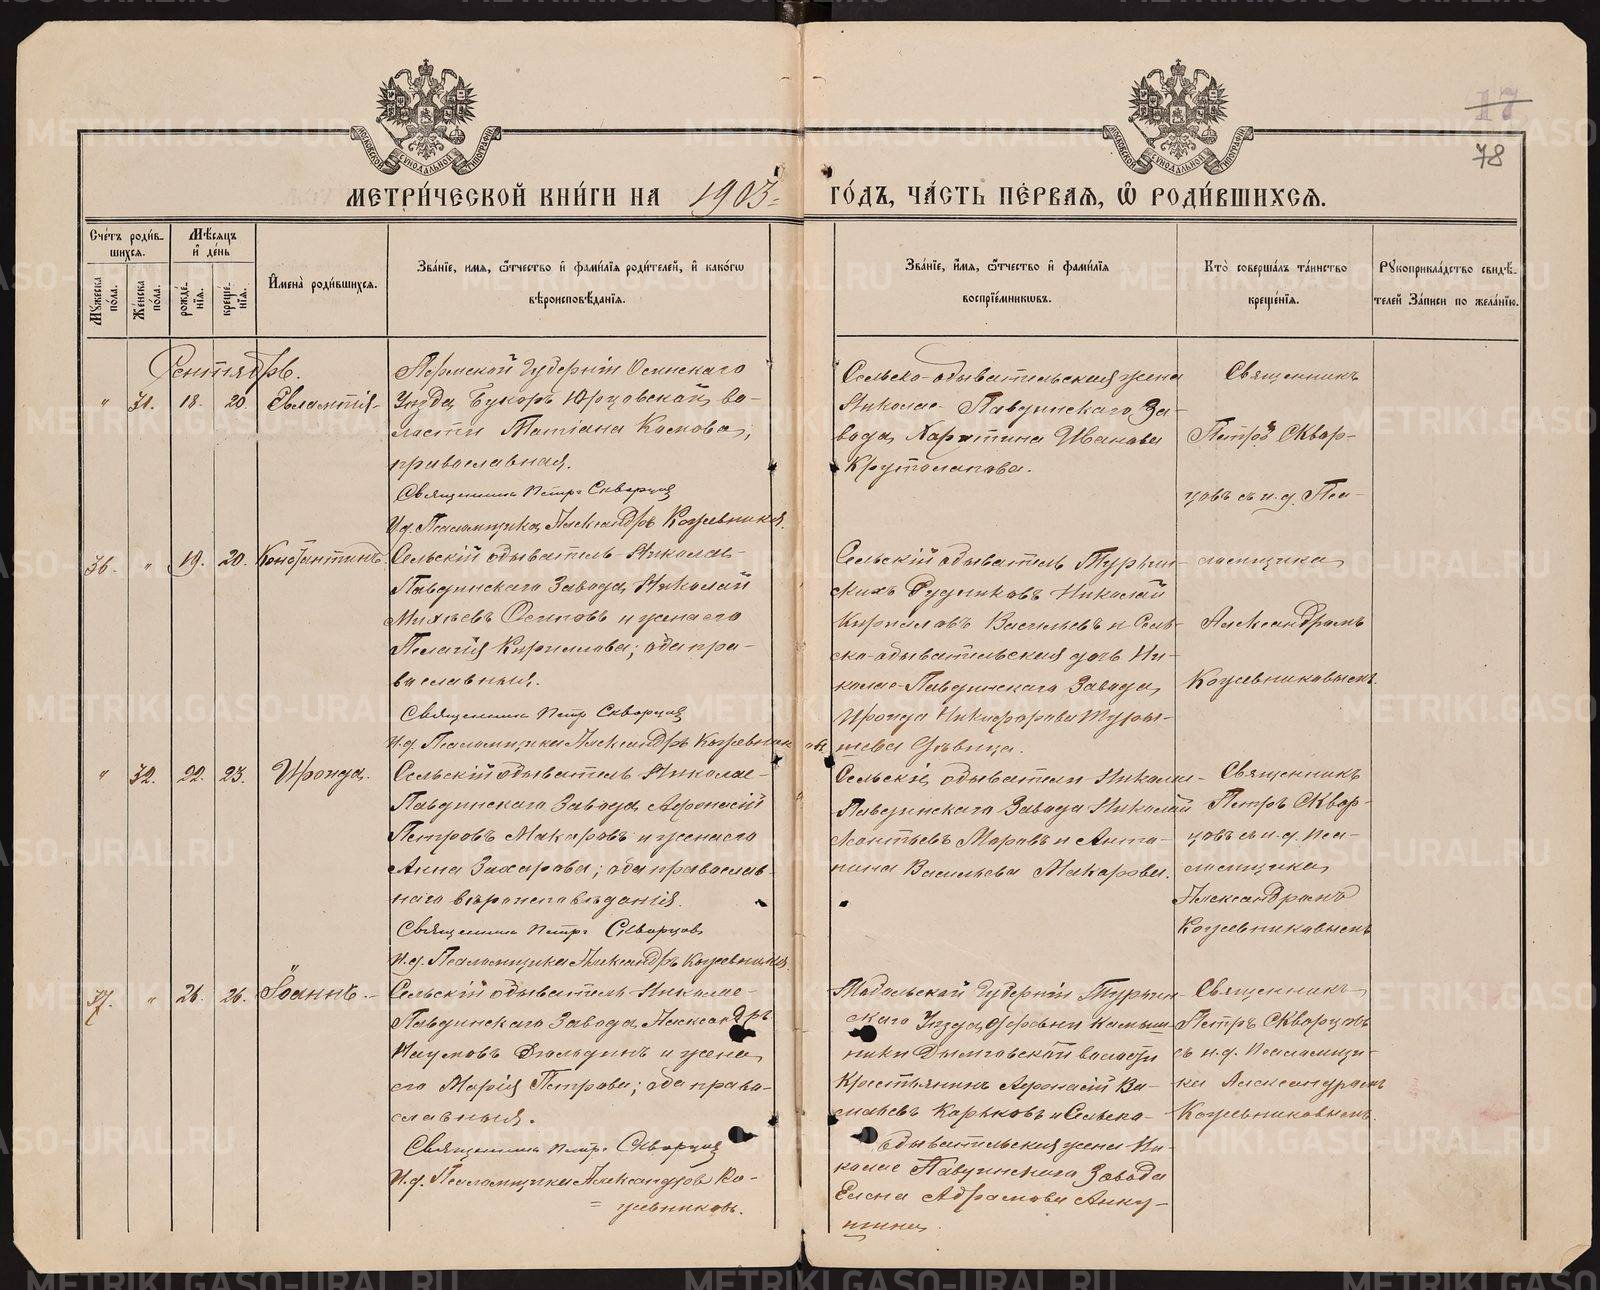 17
78
МЕТРИ́ЧЕСКОЙ КНИ́ГИ НА 1903 ГО́ДЪ, ЧА́СТЬ ПЕ́РВАЯ, Ѡ РОДИ́ВШИХСЯ.
Сче́тъ роди́в-
шихся.
Мꙋжеска по́ла.
Же́нска по́ла.
Мѣ́сяцъ и де́нь
рожде́-
нія.
креще́-
нія.
Имена̀ роди́вшихся.
Зва́ніе, имя, ѻтчество и фами́лія роди́телей, и како́гѡ
вѣроисповѣ́данія.
Зва́ніе, имя, ѻтчество и фами́лія
воспріе́мникѡвъ.
Кто̀ соверша́лъ та́инство
креще́нія.
Рꙋкоприкла́дство свидѣ́-
телей за́писи по жела́нію.
Сентябрь.
" 31. 18. 20. Евлампія
Пермской Губерніи Осинскаго
Уѣзда, Букоръ Юрговской во-
лости Татіана
православная.
Священникъ Петръ Скворцовъ
И.д. Псаломщика Александръ Кожевниковъ
Сельско-обывательская жена
Николае-Павдинскаго За-
вода, Харитина Иванова
Крутолапова.
Священникъ
Петръ Сквор-
цовъ съ и.д. Пса-
ломщика
Александромъ
Кожевниковымъ.
36. " 19. 20. Константинъ
Сельскій обыватель Николае-
Павдинскаго Завода, Николай
Осиповъ и жена его
Пелагія Кириллова; оба пра-
вославныя.
Священникъ Петръ Скворцовъ
И.д. Псаломщика Александръ Кожевниковъ
Сельскій обыватель Турьин-
скихъ Рудниковъ Николай
Кирилловъ Васильевъ и Сель-
ско-обывательская дочь Ни-
колае-Павдинскаго Завода,
Ироида Никифорова
дѣвица.
" 32. 22. 23. Ироида.
Сельскій обыватель Николае-
Павдинскаго Завода, Афонасій
Петровъ Макаровъ и жена его
Анна Захарова; оба православ-
наго вѣроисповѣданія.
Священникъ Петръ Скворцовъ
И.д. Псаломщика Александръ Кожевниковъ
Сельскіе обыватели Николае-
Павдинскаго Завода Николай
Леонтьевъ Маровъ и Анто-
нина Васильева Макарова.
Священникъ
Петръ Сквор-
цовъ съ и.д. Пса-
ломщика
Александромъ
Кожевниковымъ
37. " 26. 26. Іоаннъ
Сельскій обыватель Николае-
Павдинскаго Завода, Александръ
Наумовъ и жена
его Марія Петрова; оба право-
славныя.
Священникъ Петръ Скворцовъ
И.д. Псаломщика Александръ Ко-
жевниковъ.
Тобольской Губерніи Турин-
скаго Уѣзда, деревни Камыш-
волости
Крестьянинъ Афонасій Ва-
сильевъ Карьковъ и Сельско-
обывательская жена Ни-
колае Павдинскаго Завода
Елена Абрамова
Священникъ
Петръ Скворцовъ
съ и.д. Псаломщи-
ка Александромъ
Кожевниковымъ.
METRIKI.GASO-URAL.RU